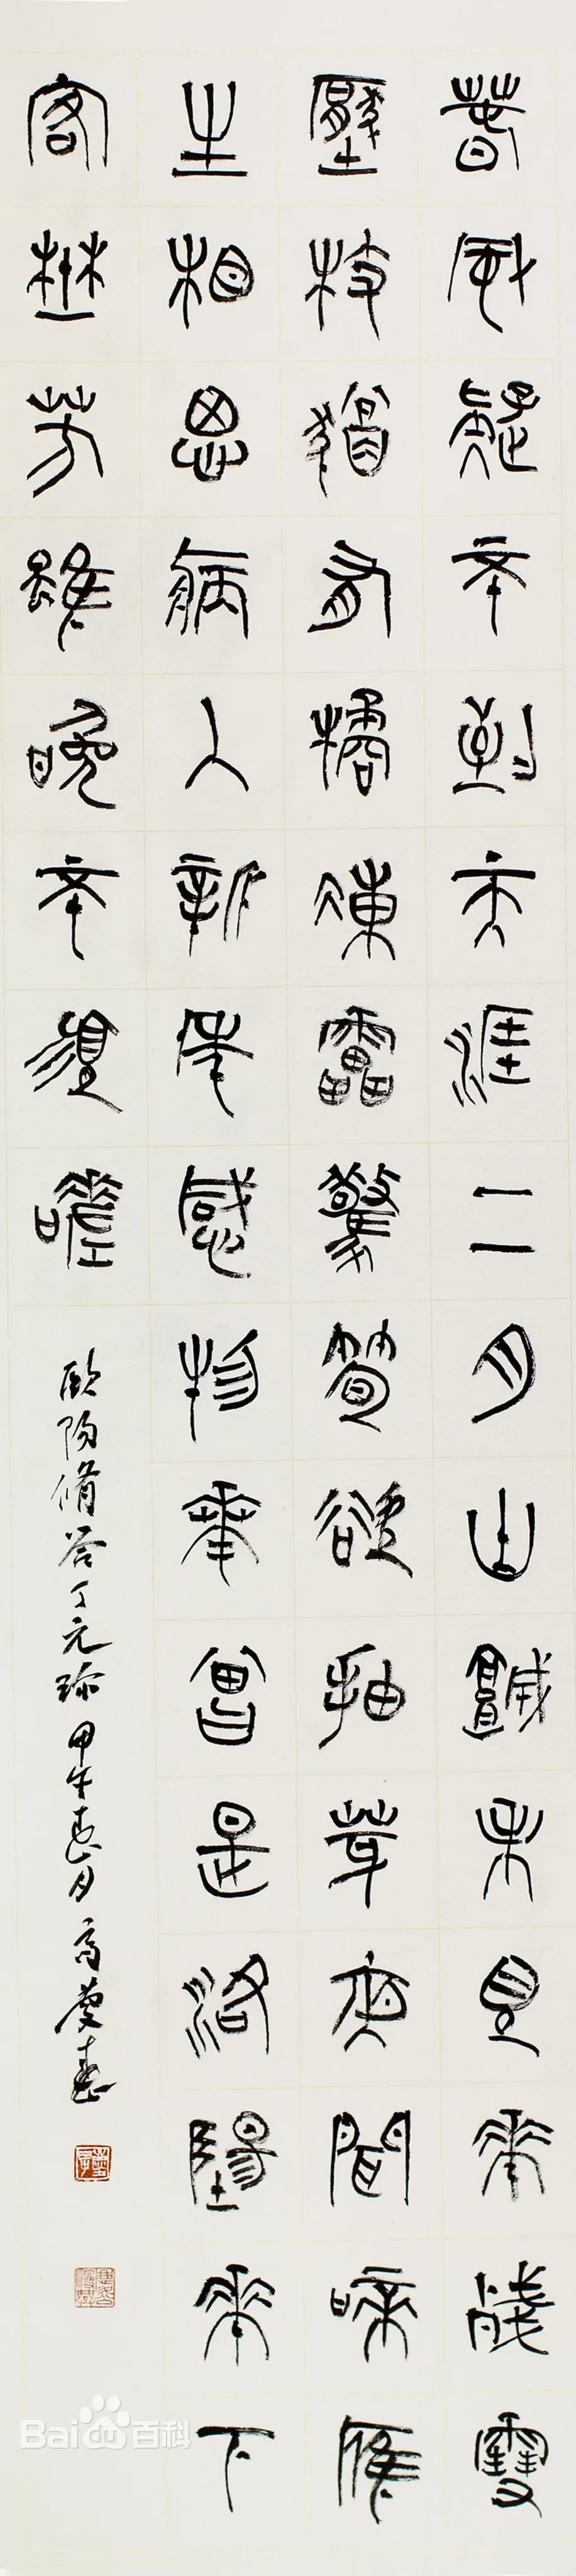 春風疑不到天涯二月山城未見花殘雪
壓枝猶有橘凍雷驚筍欲抽芽夜聞啼雁
生相思病入新年感物華曾是洛陽花下
客野芳雖晚不須嗟
歐陽修答丁元珍甲午春月高慶春
Bai百科